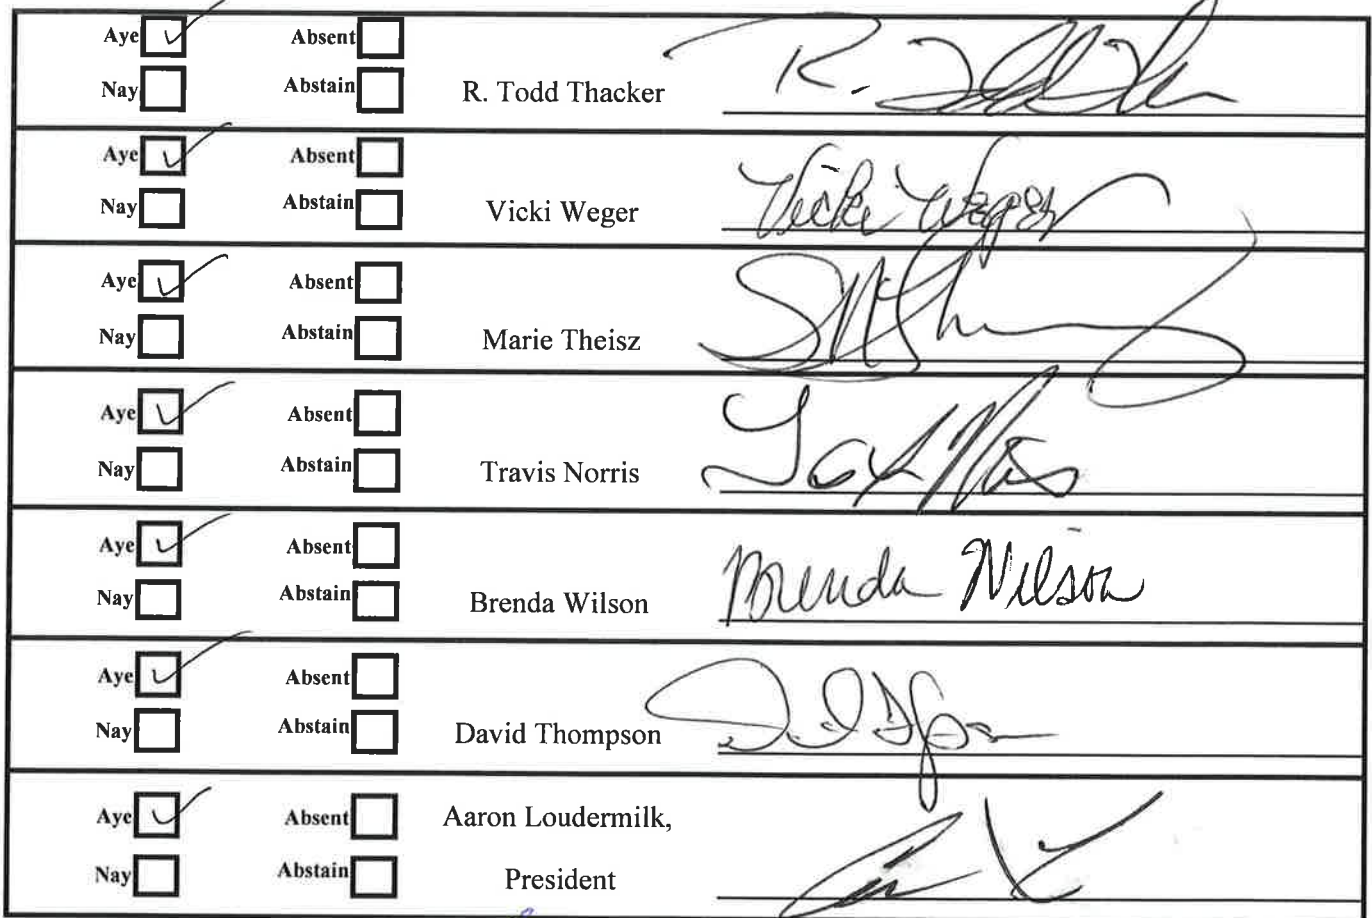 Aye Absent
Nay Abstain R. Todd Thacker R.
Aye Absent
Nay Abstain Vicki Weger Vicki Weger
Aye Absent
Nay Abstain Marie Theisz
Aye Absent
Nay Abstain Travis Norris
Aye Absent
Nay Abstain Brenda Wilson Brenda Wilson
Aye Absent
Nay Abstain David Thompson
Aye Absent Aaron Loudermilk,
Nay Abstain President